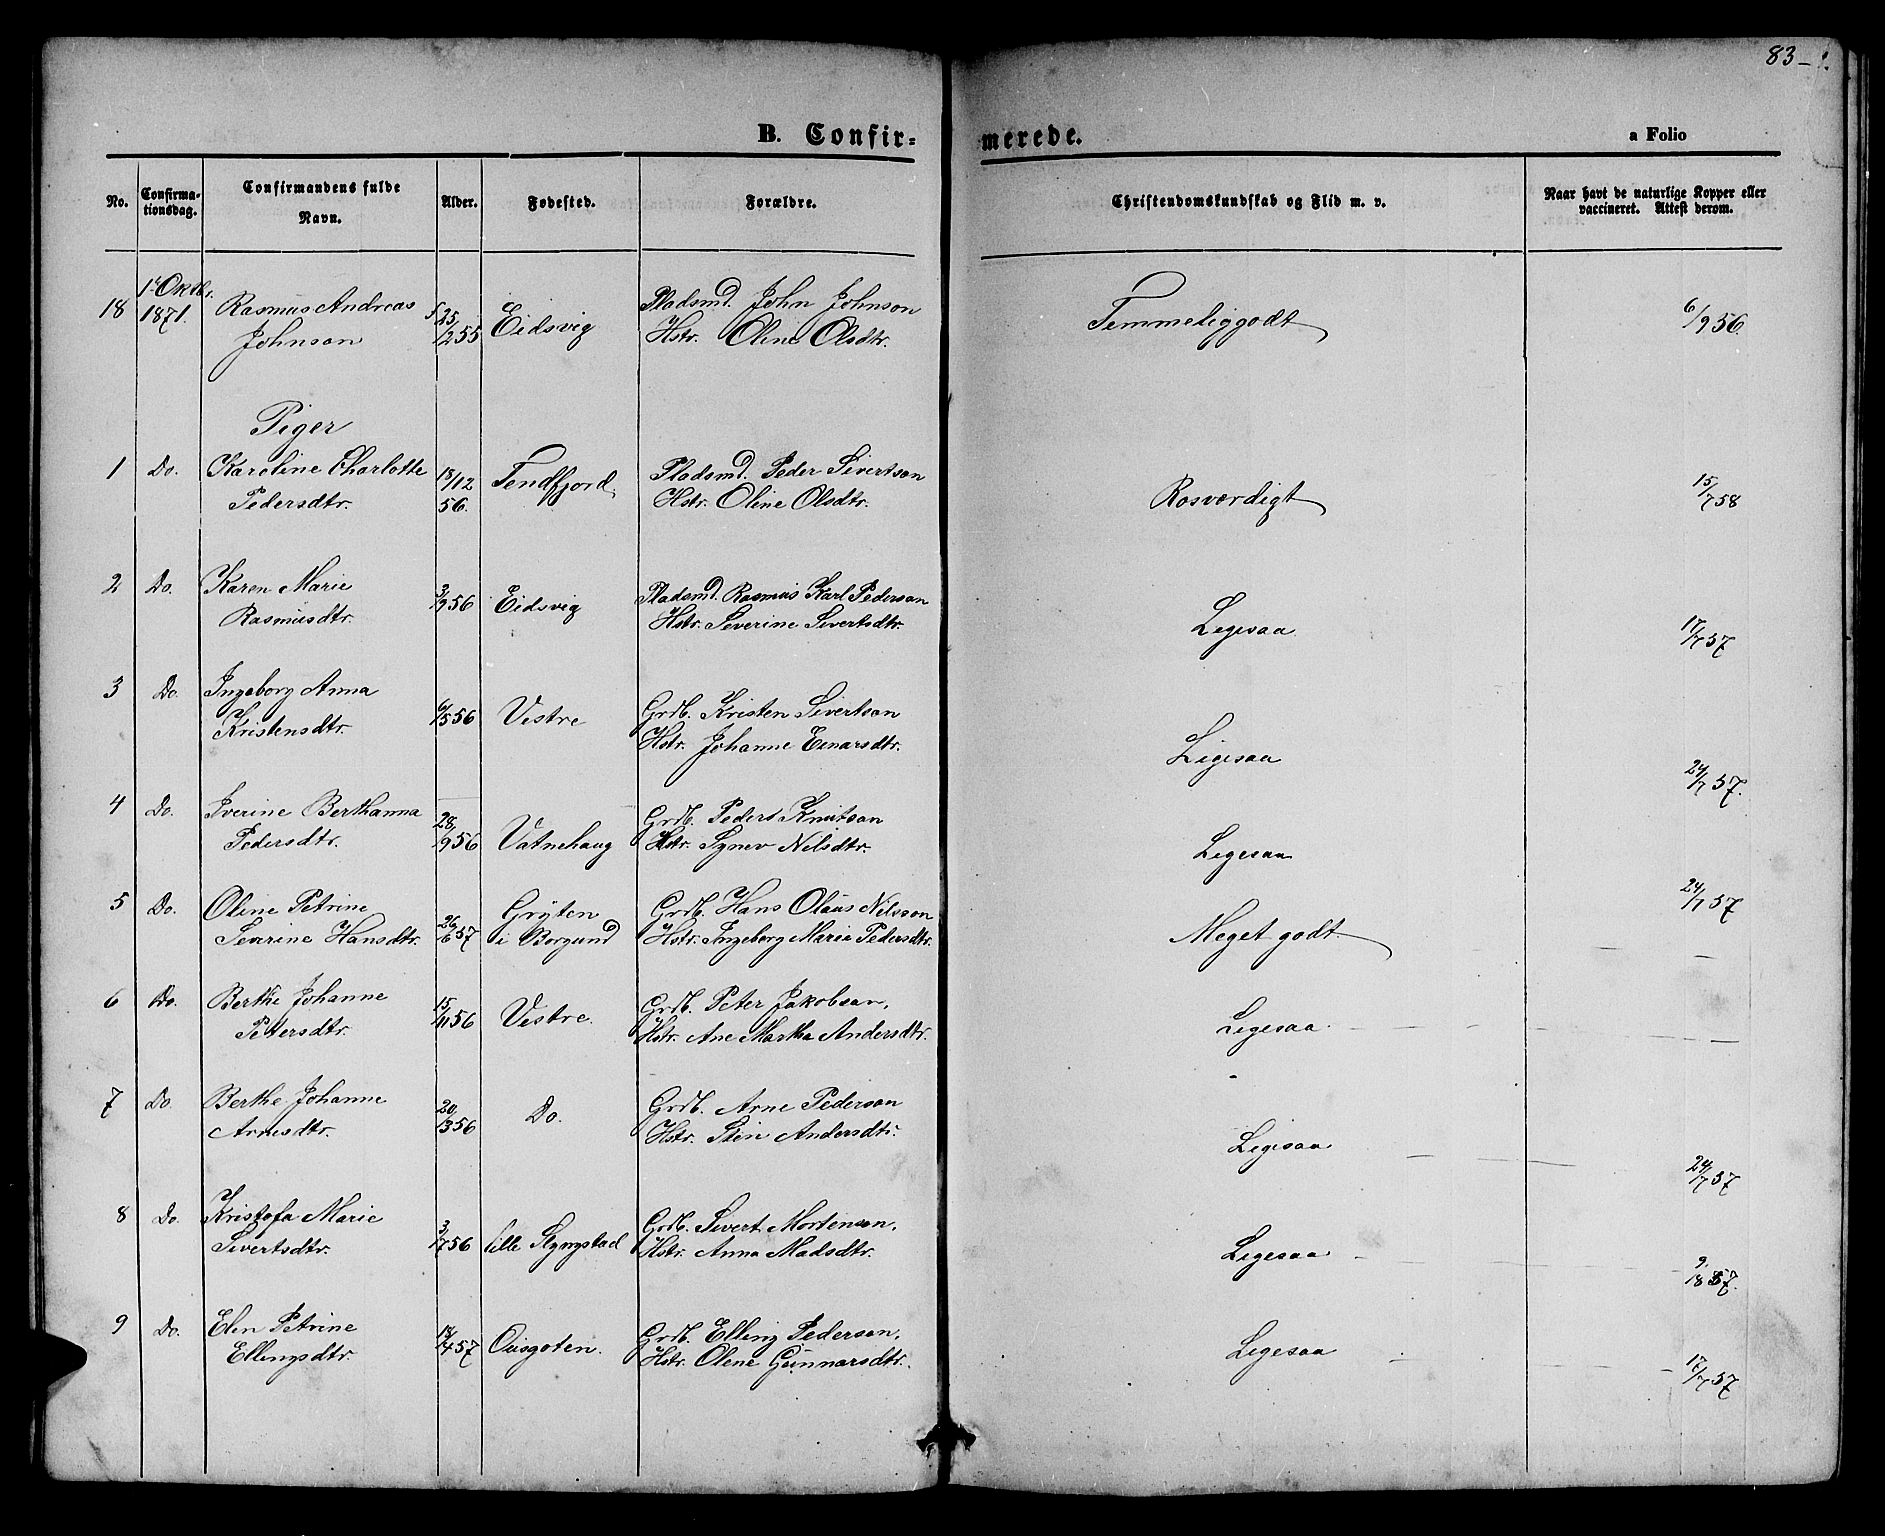 83
B. Confirmerede.
a Folio
No.
Confirmationsdag.
Confirmandens fulde Navn.
Alder.
Fødested.
Forældre.
Christendomskundskab og Flid m. v.
Naar havt de naturlige Kopper eller vaccineret. Attest derom.
18 1ste Oktbr. 1871. Rasmus Andreas Johnson 25/12 55 Eidsvig Pladsmd. John Johnson Hstr. Oline Olsdtr. Temmeliggodt 6/9 56.
Piger
1 Do. Karoline Charlotte Pedersdtr. 13/12 56. Tendfjord Pladsmd. Peder Sivertson Hstr. Oline Olsdtr. Rosværdigt 15/7 58
2 Do. Karen Marie Rasmusdtr. 3/9 56 Eidsvig Pladsmd. Rasmus Karl Pederson Hstr. Severine Sivertsdtr. Ligesaa 17/7 57
3 Do. Ingeborg Anna Kristensdtr. 6/5 56 Vestre Grdb. Kristen Sivertson Hstr. Johanne Einarsdtr. Ligesaa 24/7 57.
4 Do. Iverine Berthanna Pedersdtr. 28/9 56 Vatnehaug Grdb. Peder Knutson Hstr. Synev Nilsdtr. Ligesaa 24/7 57
5 Do. Oline Petrine Severine Hansdtr. 26/6 57 Gryten i Borgund Grdb. Hans Olaus Nilsson Hstr. Ingeborg Marie Pedersdtr. Meget godt. —
6 Do. Berthe Johanne Petersdtr. 15/11 56 Vestre. Grdb. Peter Jakobson, Hstr. Ane Martha Andersdtr. Ligesaa. —
7 Do. Berthe Johanne Arnesdtr. 20/3 56 Do. Grdb. Arne Pederson Hstr. Sten Andersdtr. Ligesaa 24/7 57
8 Do. Kristofa Marie Sivertsdtr. 3/7 56 lille Slyngstad Grdb. Sivert Mortenson, Hstr. Anna Madsdtr. Ligesaa 9/18 57.
9 Do. Elen Petrine Ellingsdtr. 14/4 57 Grdb. Elling Pederson, Hstr. Olene Gunnarsdtr. Ligesaa 17/7 57